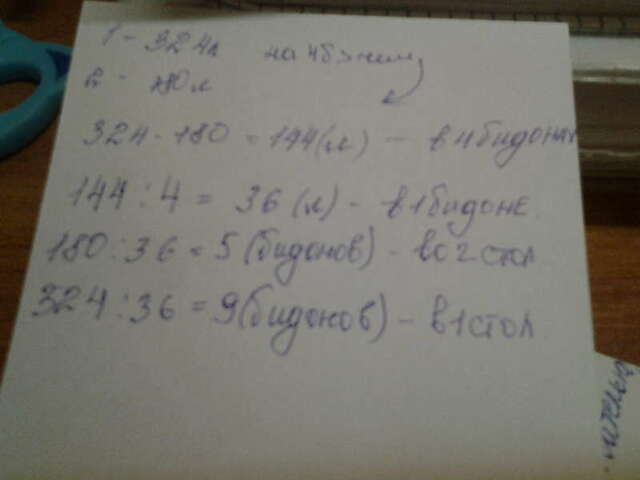 1 - 324л на 4б >чем
2 - 180л
324 - 180 = 144(л) - в 4 бидонах
144 : 4 = 36 (л) - в 1 бидоне
180 : 36 = 5 (бидонов) - во 2 стол
324 : 36 = 9 (бидонов) - в 1 стол